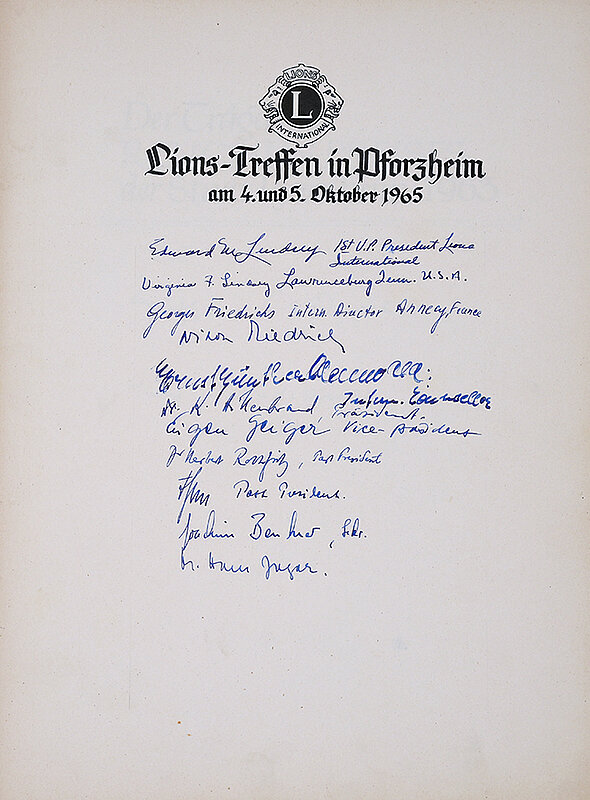 LIONS
L
INTERNATIONAL
Lions-Treffen in Pforzheim
am 4. und 5. Oktober 1965
Edward M. Lindsey 1st V.P. President Lions
International
Virginia F. Lindsey Lawrenceburg Tenn. U.S.A.
Georges Friedrichs Intern. Director Annecy, France
Friedrichs
Ernst Günther
Dr. K. Intern. Counsellor
Präsident.
Eugen Geiger, Vice-präsident
Dr Herbert, Past President
Past President.
Joachim, Sekr.
Dr. Hans